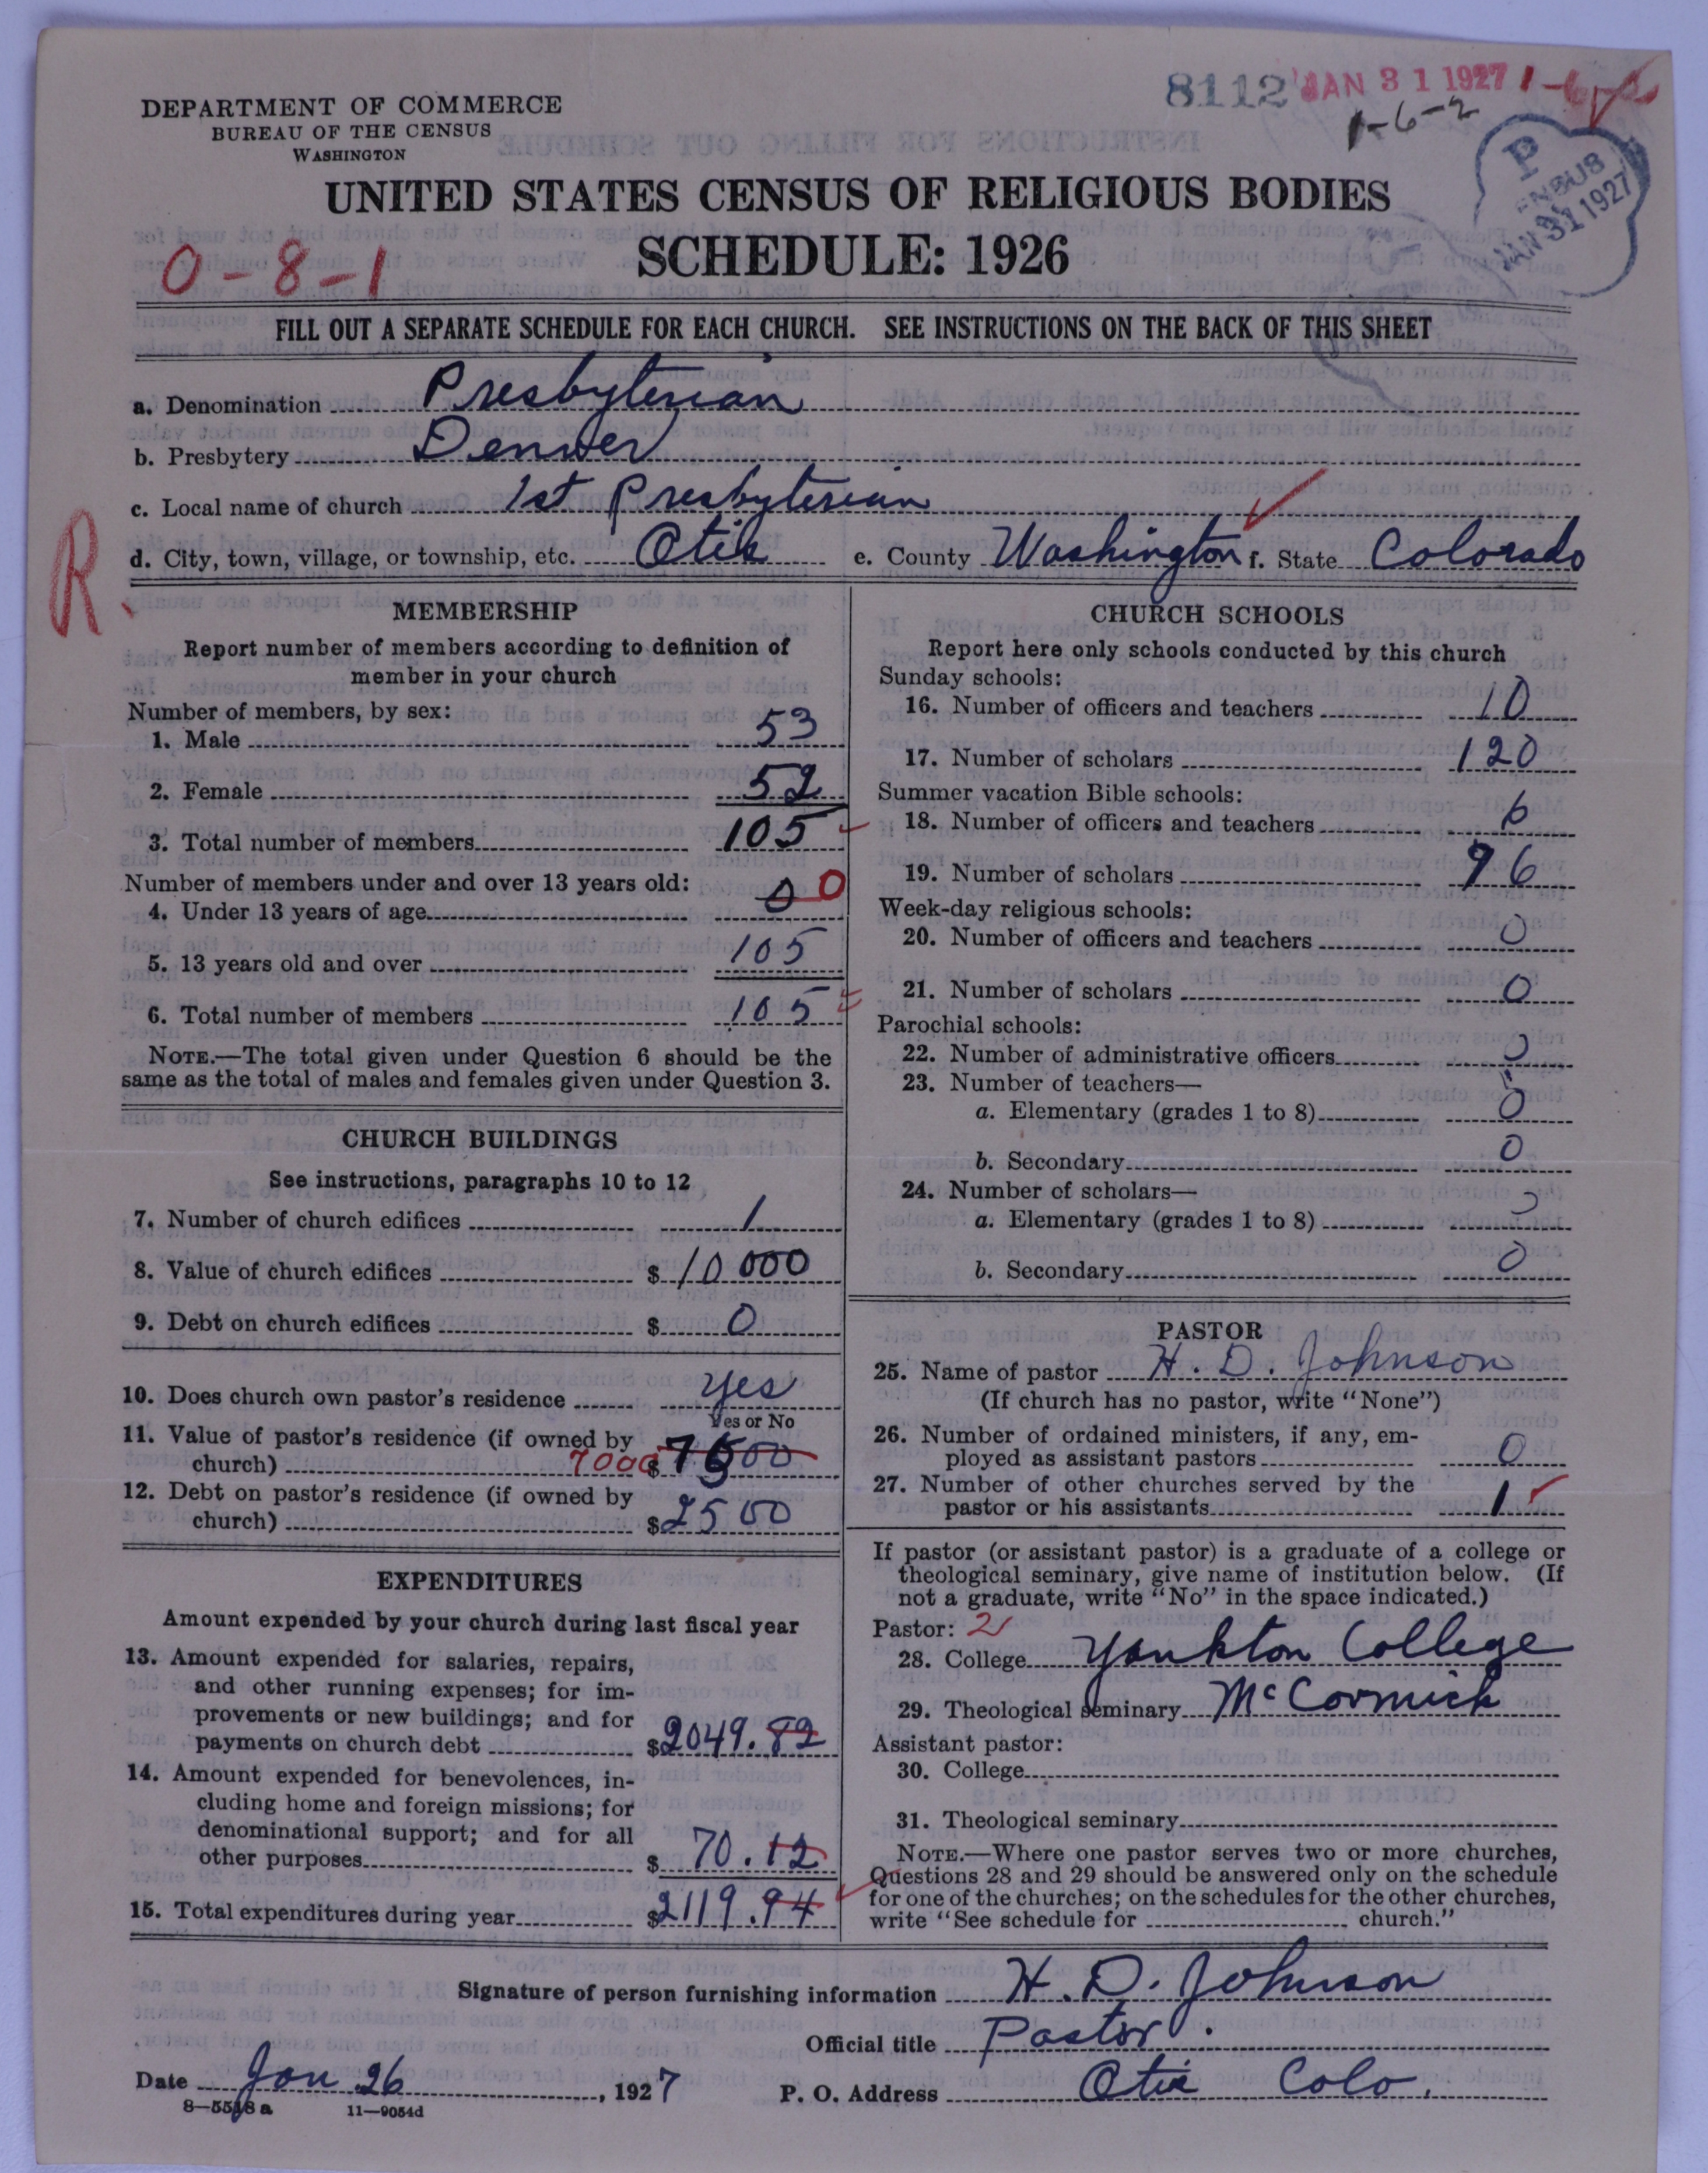 8112 JAN 31 1927 1-6-2
1-6-2
DEPARTMENT OF COMMERCE
BUREAU OF THE CENSUS
WASHINGTON
P
CENSUS
JAN 31 1927
UNITED STATES CENSUS OF RELIGIOUS BODIES
SCHEDULE: 1926
0-8-1
FILL OUT A SEPARATE SCHEDULE FOR EACH CHURCH. SEE INSTRUCTIONS ON THE BACK OF THIS SHEET
a. Denomination Presbyterian
b. Presbytery Denver
c. Local name of church 1st Presbyterian
d. City, town, village, or township, etc. Otis e. County Washington f. State Colorado
R.
MEMBERSHIP
Report number of members according to definition of
member in your church
Number of members, by sex:
1. Male 53
2. Female 52
3. Total number of members 105
Number of members under and over 13 years old:
4. Under 13 years of age 0 0
5. 13 years old and over 105
6. Total number of members 105
NOTE.—The total given under Question 6 should be the
same as the total of males and females given under Question 3.
CHURCH BUILDINGS
See instructions, paragraphs 10 to 12
7. Number of church edifices 1
8. Value of church edifices $10000
9. Debt on church edifices $ 0
10. Does church own pastor's residence Yes
Yes or No
11. Value of pastor's residence (if owned by
church) 7000 $
12. Debt on pastor's residence (if owned by
church) $2500
EXPENDITURES
Amount expended by your church during last fiscal year
13. Amount expended for salaries, repairs,
and other running expenses; for im-
provements or new buildings; and for
payments on church debt $2049.82
14. Amount expended for benevolences, in-
cluding home and foreign missions; for
denominational support; and for all
other purposes $ 70.12
15. Total expenditures during year $2119.94
CHURCH SCHOOLS
Report here only schools conducted by this church
Sunday schools:
16. Number of officers and teachers 10
17. Number of scholars 120
Summer vacation Bible schools:
18. Number of officers and teachers 6
19. Number of scholars 76
Week-day religious schools:
20. Number of officers and teachers 0
21. Number of scholars 0
Parochial schools:
22. Number of administrative officers 0
23. Number of teachers—
a. Elementary (grades 1 to 8) 0
b. Secondary 0
24. Number of scholars—
a. Elementary (grades 1 to 8) 0
b. Secondary 0
PASTOR
25. Name of pastor H. D. Johnson
(If church has no pastor, write "None")
26. Number of ordained ministers, if any, em-
ployed as assistant pastors 0
27. Number of other churches served by the
pastor or his assistants 1
If pastor (or assistant pastor) is a graduate of a college or
theological seminary, give name of institution below. (If
not a graduate, write "No" in the space indicated.)
Pastor: 2
28. College Yankton College
29. Theological seminary McCormick
Assistant pastor:
30. College
31. Theological seminary
NOTE.—Where one pastor serves two or more churches,
Questions 28 and 29 should be answered only on the schedule
for one of the churches; on the schedules for the other churches,
write "See schedule for church."
Signature of person furnishing information H. D. Johnson
Official title Pastor.
Date Jan 26, 1927 P. O. Address Otis Colo.
8—5518 a 11—9054d